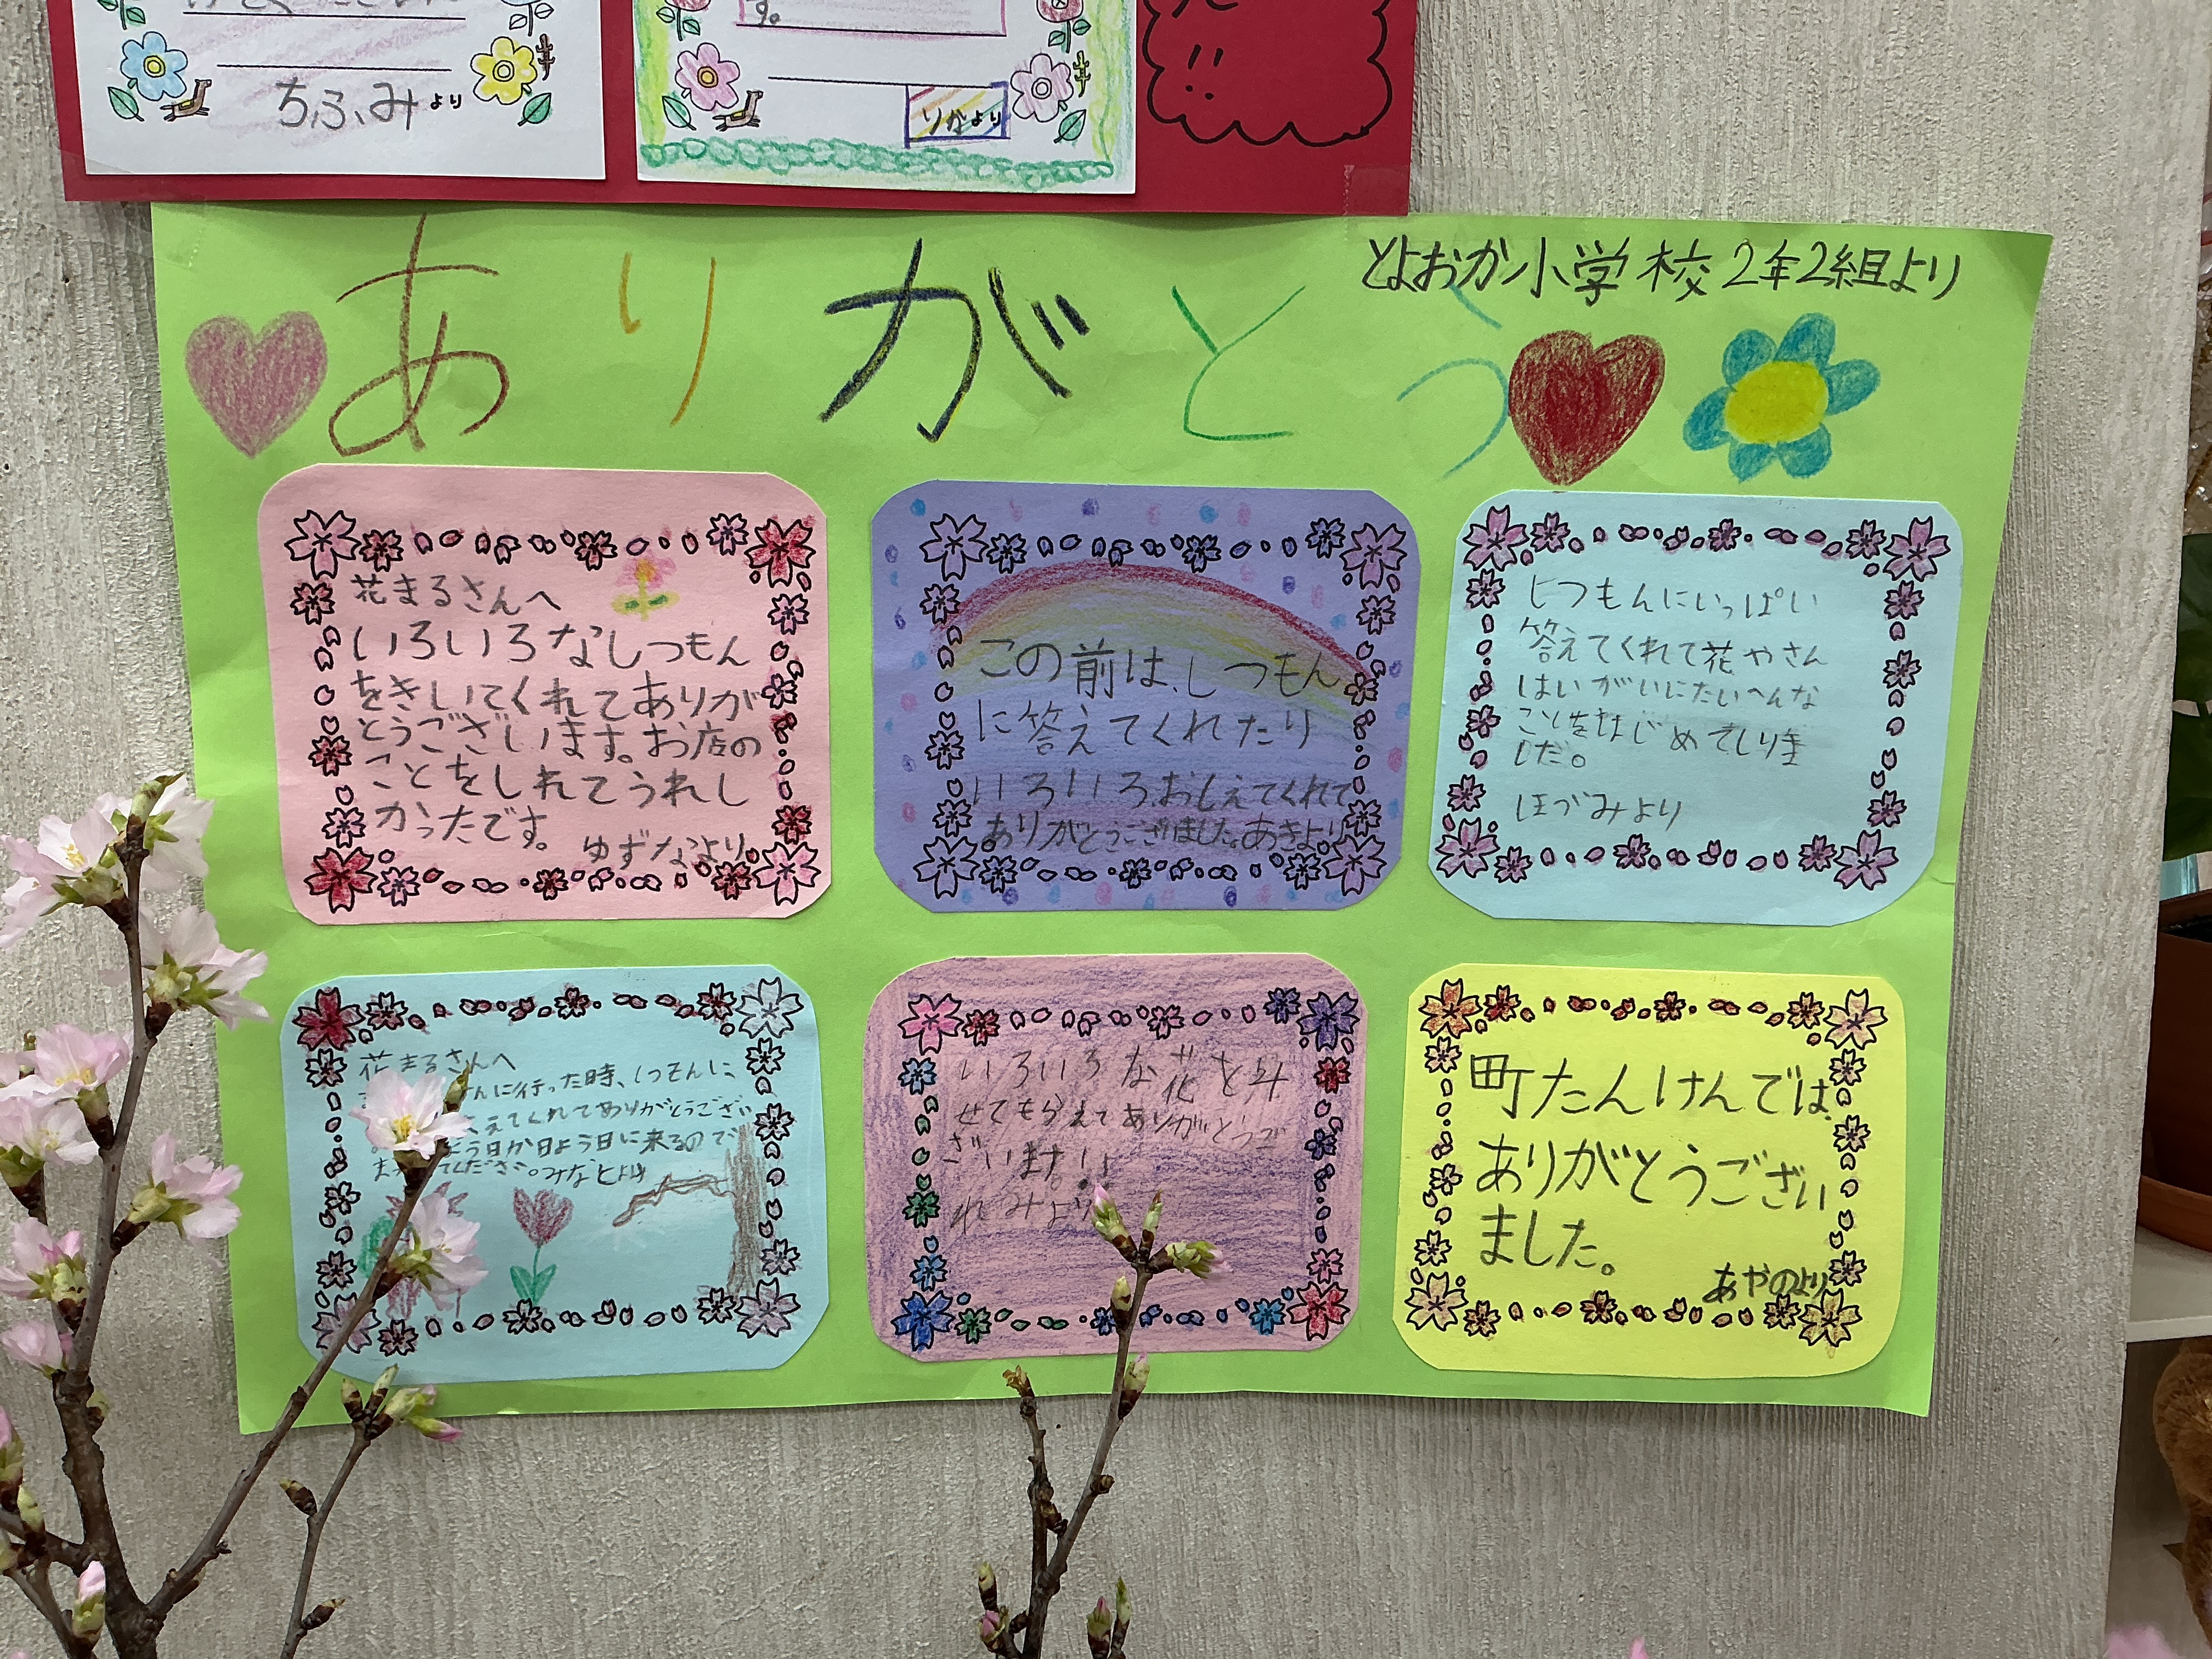 す。
ちふみより
りかより
!!
とよおか小学校2年2組より
ありがとう
花まるさんへ
いろいろなしつもん
をきいてくれてありが
とうございます。お店の
ことをしれてうれし
かったです。
ゆずなより
この前は、しつもん
に答えてくれたり
いろいろおしえてくれて
ありがとうございました。あきより
しつもんにいっぱい
答えてくれて花やさん
はいがいにたいへんな
ことをはじめてしりま
した。
ほづみより
花まるさんへ
んに行った時、しつもんに、
えてくれてありがとうござい
よう日か日よう日に来るので
ってください。みなとより
いろいろな花を見
せてもらえてありがとうご
ざいます!!
れみより
町たんけんでは、
ありがとうござい
ました。
あやのより